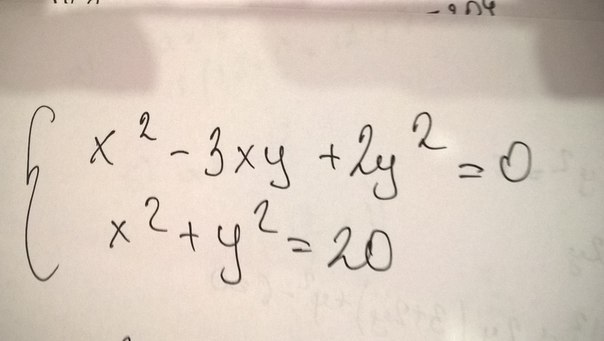 x² - 3xy + 2y² = 0
x² + y² = 20